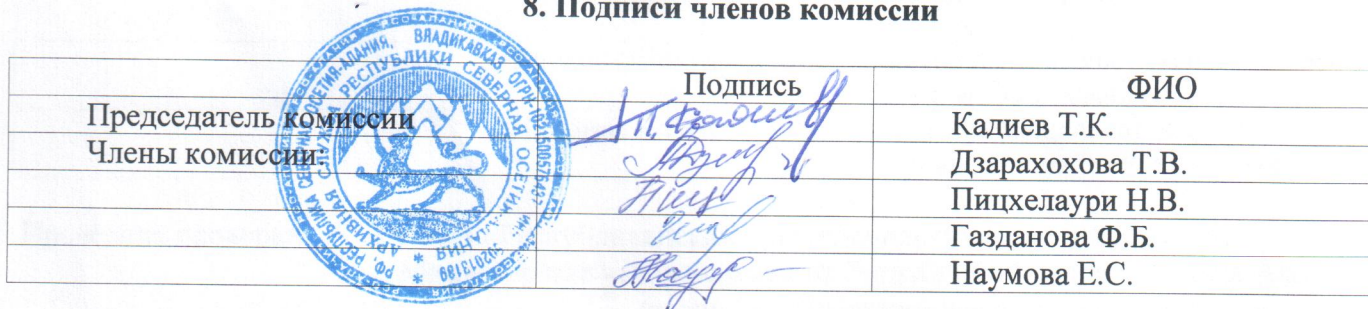 8. Подписи членов комиссии
Подпись ФИО
Председатель комиссии Кадиев Т.К.
Члены комиссии: Дзарахохова Т.В.
Пицхелаури Н.В.
Газданова Ф.Б.
Наумова Е.С.
РФ, РЕСПУБЛИКА СЕВЕРНАЯ ОСЕТИЯ-АЛАНИЯ, ВЛАДИКАВКАЗ, ОГРН
АРХИВНАЯ СЛУЖБА РЕСПУБЛИКИ СЕВЕРНАЯ ОСЕТИЯ-АЛАНИЯ